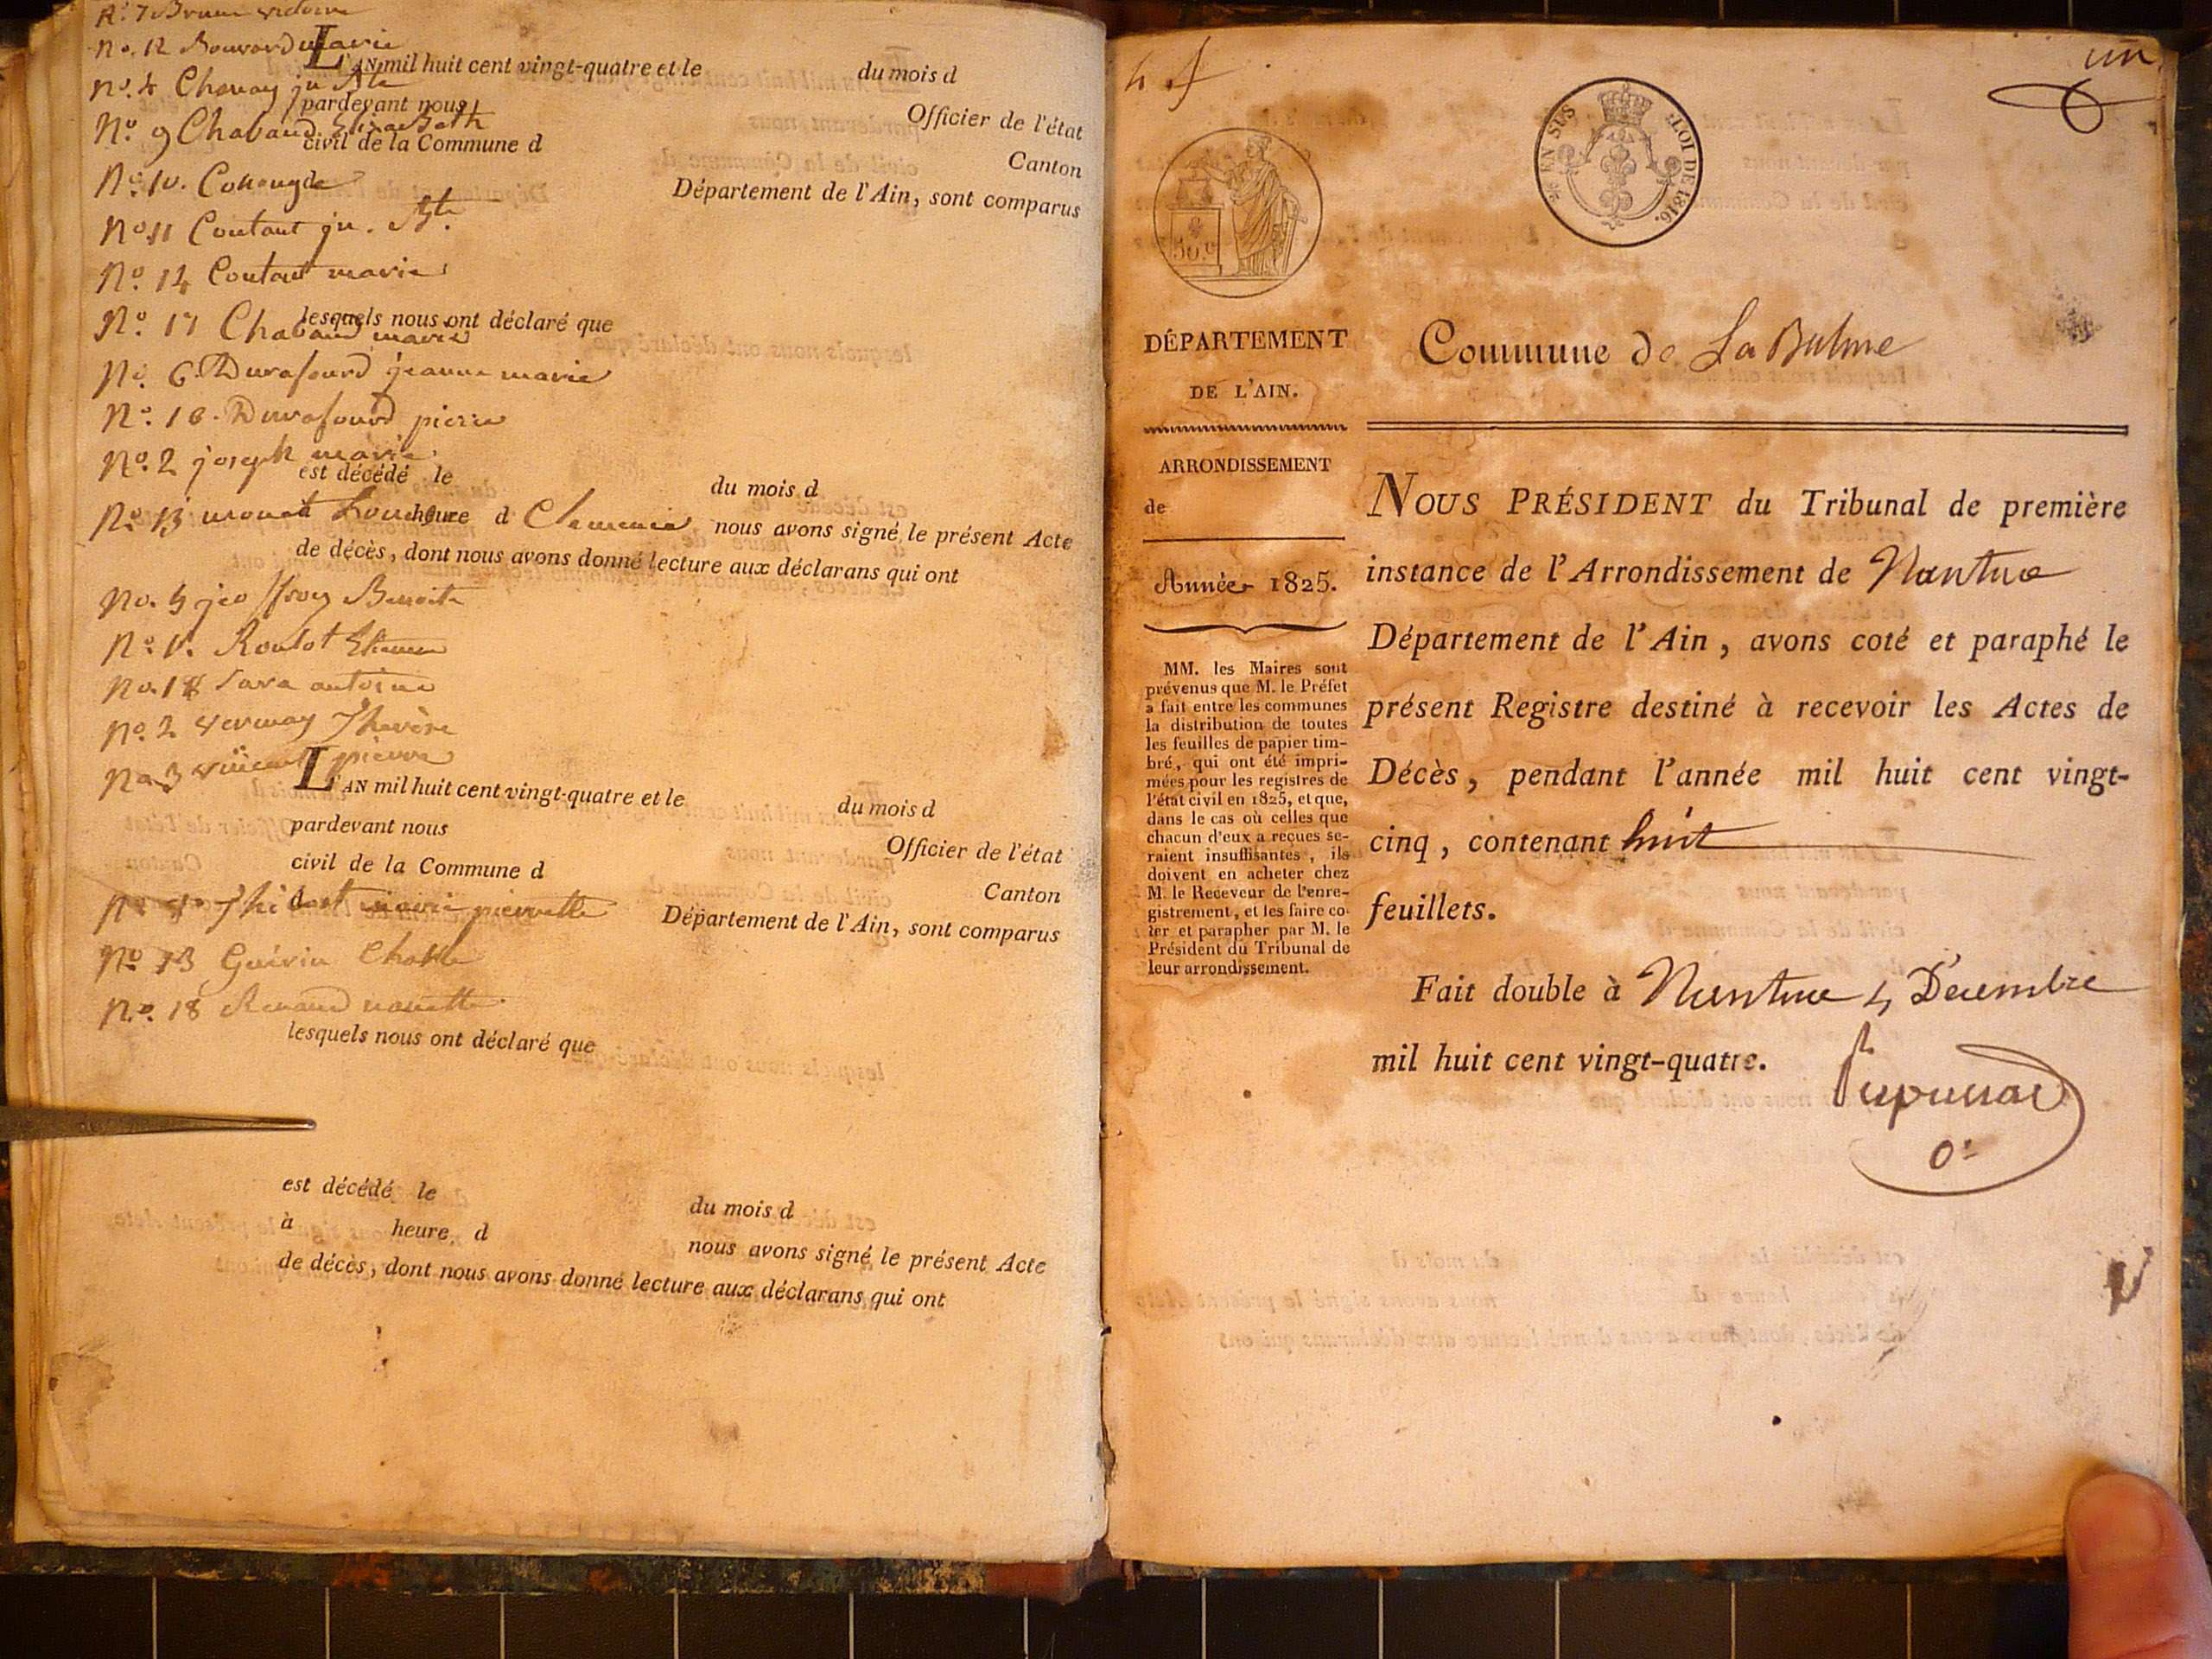 No. 12 Bouvard marie
L'AN mil huit cent vingt-quatre et le du mois d
No. 4 Chanay jn Bte
pardevant nous Officier de l'état
No. 9 Chabaud Elisabeth
civil de la Commune d Canton
No. 10. Collonge
Département de l'Ain, sont comparus
No. 11 Coutant jn. Bte.
No. 14 Coutant marie
lesquels nous ont déclaré que
No. 17 Chabaud marie
No. 6. Durafourd jeanne marie
No. 16. Durafourd pierre
No. 2 joseph marie
est décédé le du mois d
No. 13 heure d nous avons signé le présent Acte
de décès, dont nous avons donné lecture aux déclarans qui ont
No. 5 jeoffroy Benoite
No. 1. Roulot Etienne
No. 18 antoine
No. 2 vernay Therèse
No. 3 vincent pierre
L'AN mil huit cent vingt-quatre et le du mois d
pardevant nous Officier de l'état
civil de la Commune d Canton
d Département de l'Ain, sont comparus
marie pierrette
No. 13 Guérin
No. 18 Renaud
lesquels nous ont déclaré que
est décédé le du mois d
à heure d nous avons signé le présent Acte
de décès, dont nous avons donné lecture aux déclarans qui ont
un
EN SUS LOI DE 1816.
50.c
DÉPARTEMENT
DE L'AIN.
ARRONDISSEMENT
de
Année 1825.
MM. les Maires sont
prévenus que M. le Préfet
a fait entre les communes
la distribution de toutes
les feuilles de papier tim-
bré, qui ont été impri-
mées pour les registres de
l'état civil en 1825, et que,
dans le cas où celles que
chacun d'eux a reçues se-
raient insuffisantes, ils
doivent en acheter chez
M. le Receveur de l'enre-
gistrement, et les faire co-
ter et parapher par M. le
Président du Tribunal de
leur arrondissement.
Commune de La Balme
NOUS PRÉSIDENT du Tribunal de première
instance de l'Arrondissement de Nantua
Département de l'Ain, avons coté et paraphé le
présent Registre destiné à recevoir les Actes de
Décès, pendant l'année mil huit cent vingt-
cinq, contenant huit
feuillets.
Fait double à Nantua 4 Decembre
mil huit cent vingt-quatre.